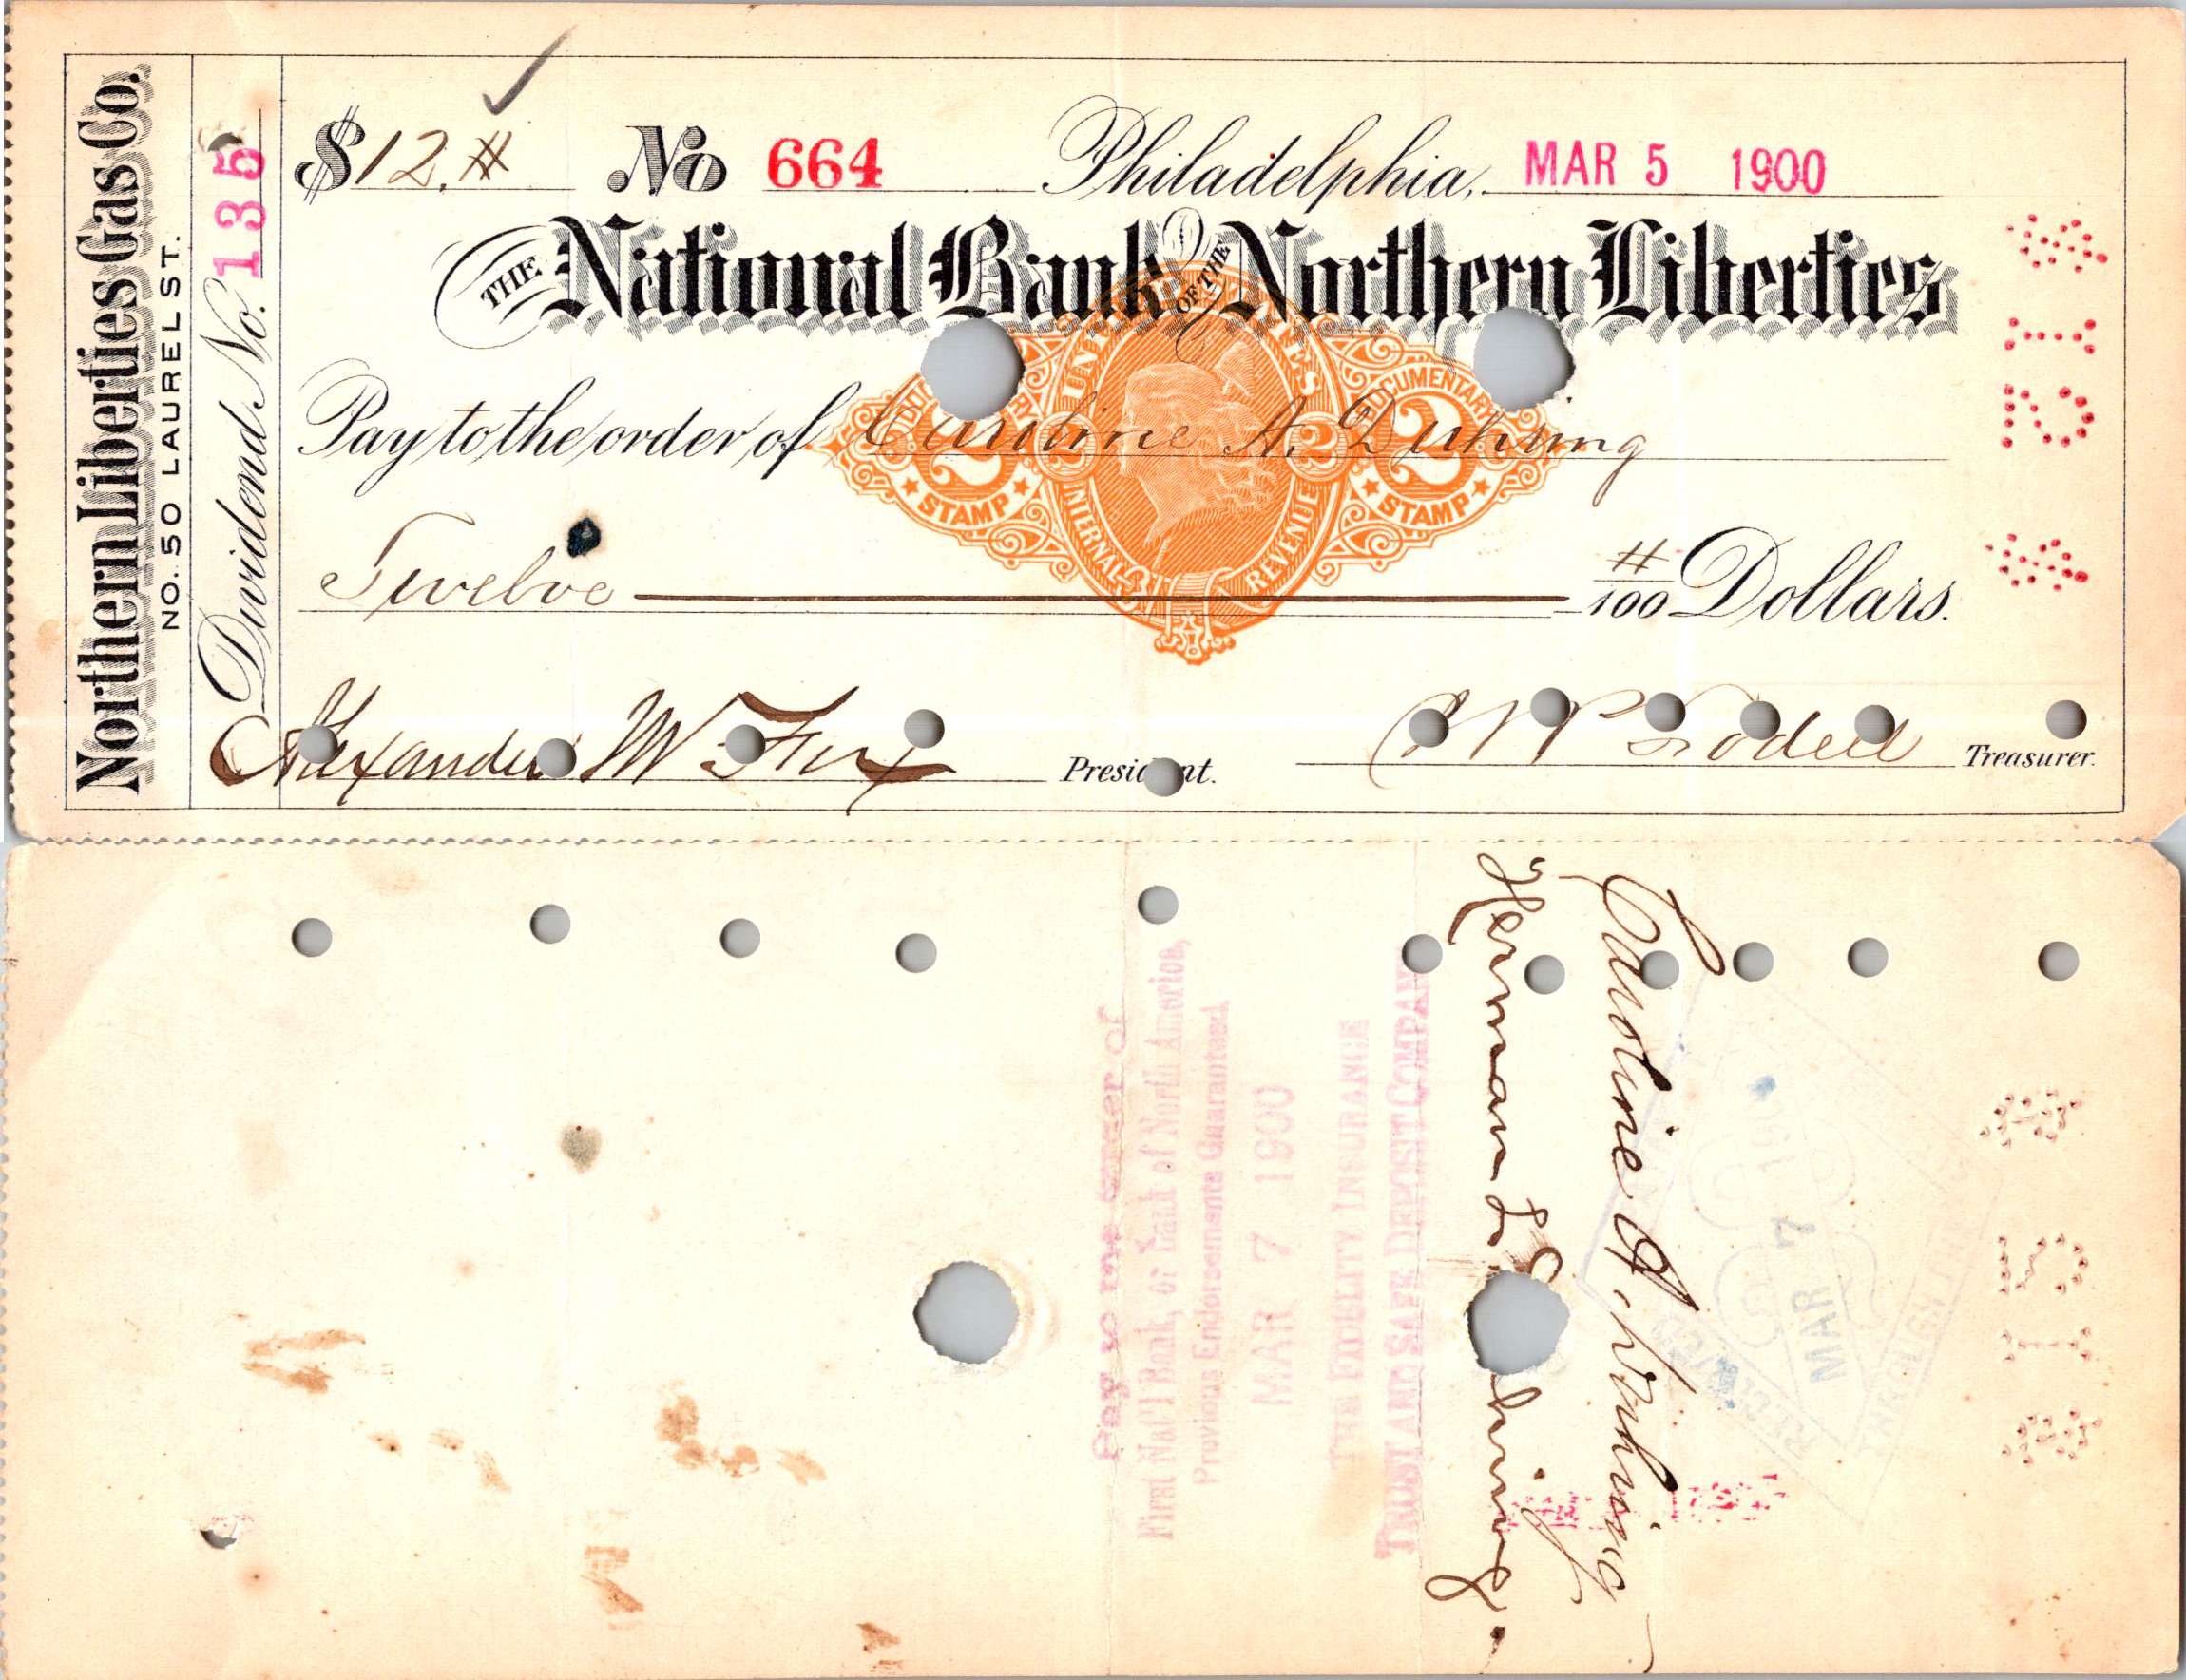 Northern Liberties Gas Co.
NO. 50 LAUREL ST.
Dividend No. 135
$12.# No 664 Philadelphia, MAR 5 1900
THE National Bank OF THE Northern Liberties
Pay to the order of Caroline A. Duhring
UNITED STATES
DOCUMENTARY DOCUMENTARY
2 2 2 2
STAMP STAMP
INTERNAL REVENUE
Twelve #/100 Dollars.
Alexander W President.
Treasurer.
* 512 *
Caroline A. Duhring
Herman L. Duhring.
THE FIDELITY INSURANCE
TRUST AND SAFE DEPOSIT COMPANY
MAR 7 1900
Pay to the order of
First Nat'l Bank, or Bank of North America,
Previous Endorsements Guaranteed.
RECEIVED
MAR 7 190
THROUGH THE